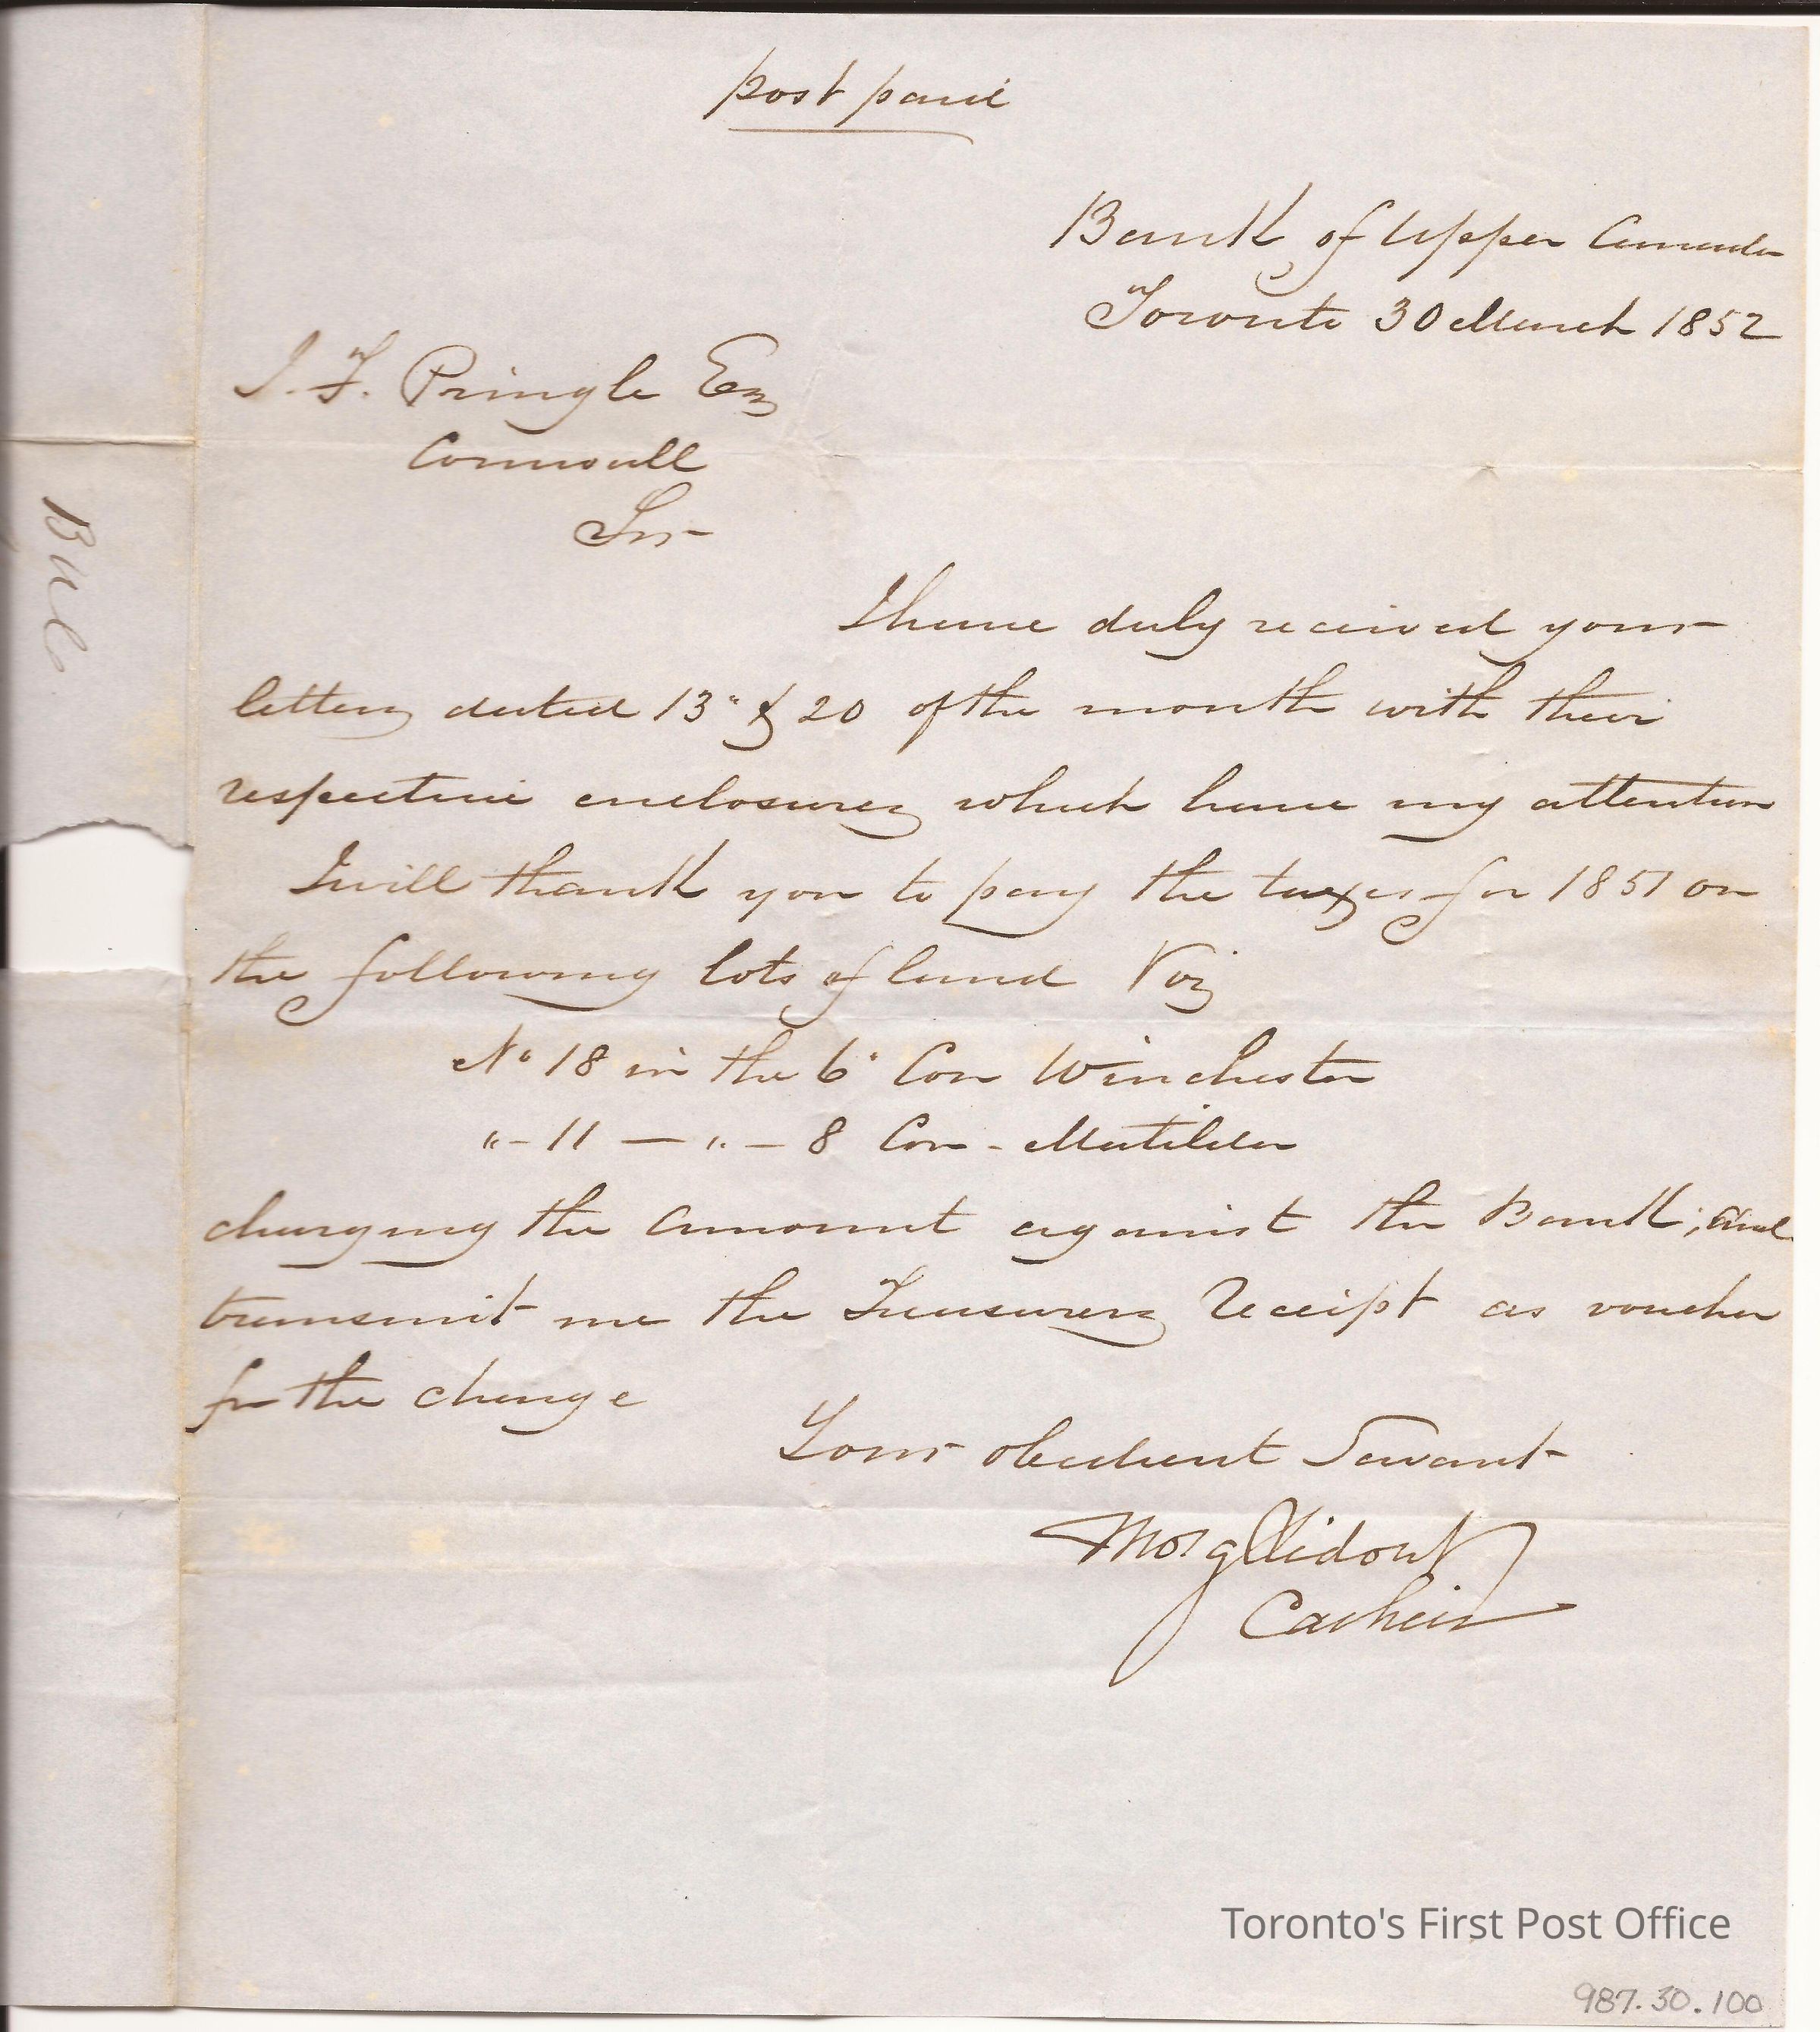 post paid
Bank of Upper Canada
Toronto 30 March 1852
J. F. Pringle Esq
Cornwall
Sir
I have duly received your
letters dated 13" & 20 of the month with their
respective enclosures which have my attention
I will thank you to pay the taxes for 1851 on
the following lots of land Viz
No 18 in the 6" Con Winchester
"- 11 — " — 8 Con - Matilda
charging the amount against the Bank; and
transmit me the Treasurers receipt as voucher
for the charge
Your obedient Servant
Thos G Ridout
Cashier
Toronto's First Post Office
987.30.100